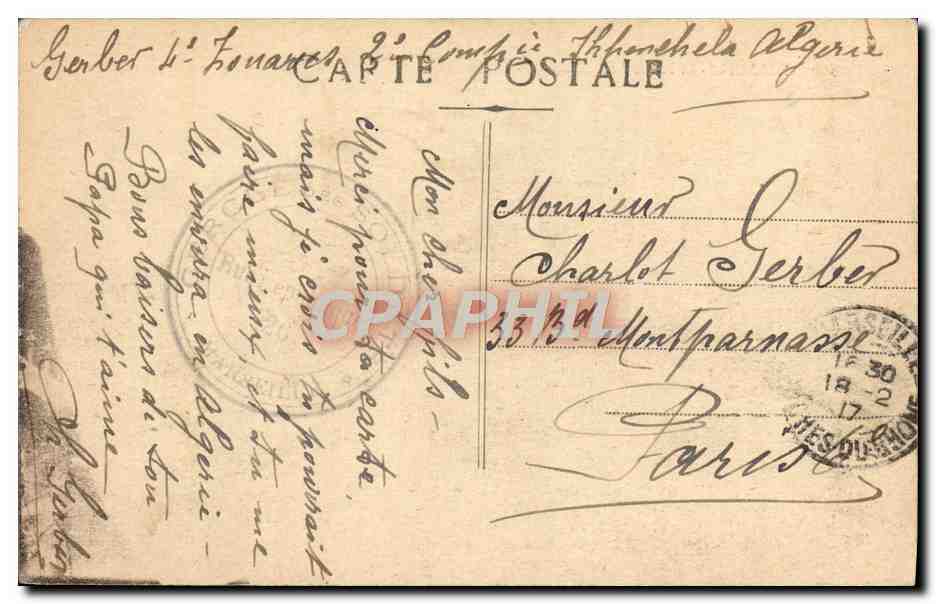 Gerber 4e Zouaves 2e Compie Khenchela Algerie
CARTE POSTALE
Mon cher fils -
Merci pour ta carte,
mais je crois tu pourrait
faire mieux, et tu me
les enverra en Algerie -
Bons baisers de ton
Papa qui t'aime
Gerber
Monsieur
Charlot Gerber
33 Bd Montparnasse
Paris
MARSEILLE
1* 30
18 - 2
17
CPAPHIL